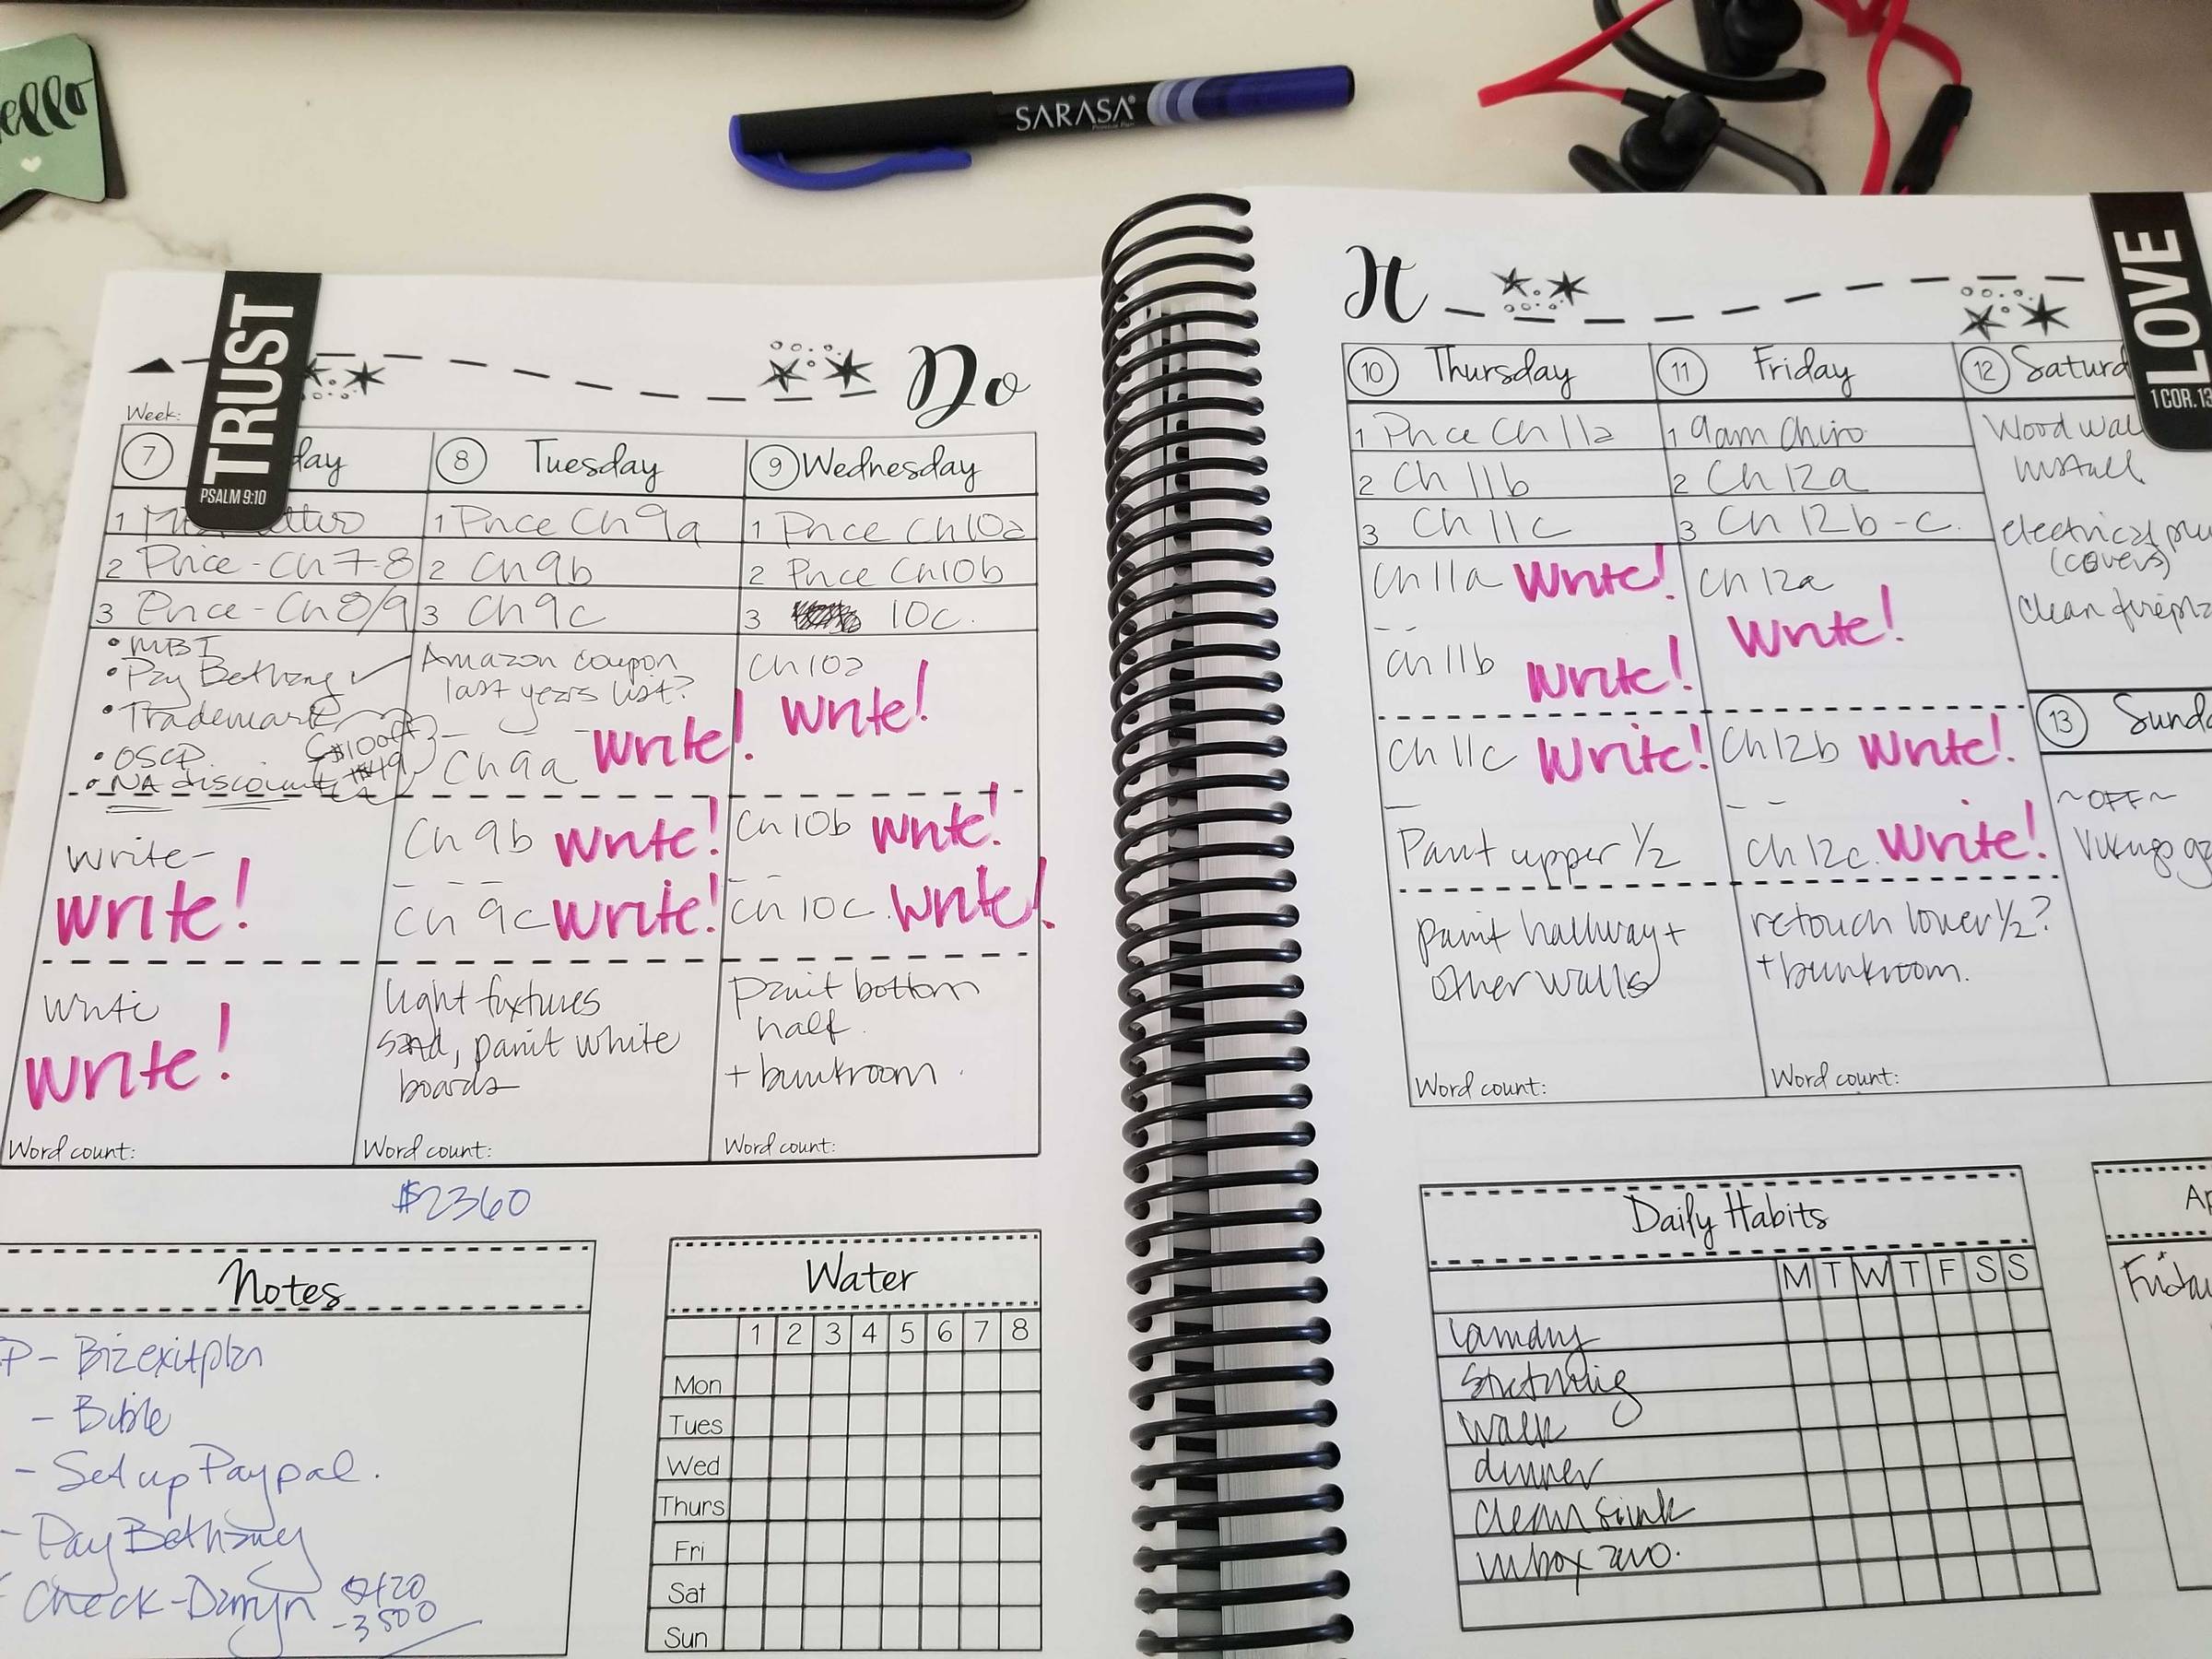 ello
SARASA
TRUST
PSALM 9:10
Do
Week:
7 day
1
2 Price - Ch 7-8
3 Price - Ch 8/9
• MBT
• Pay Bethany ✓
• Trademark
• OSCP
• NA discount
$100 off
$49
Write-
Write!
Write
Write!
Word count:
8 Tuesday
1 Price Ch 9a
2 Ch 9b
3 Ch 9c
Amazon coupon
last years list?
Ch 9a Write!
Ch 9b Write!
Ch 9c Write!
light fixtures
sand, paint white
boards
Word count:
9 Wednesday
1 Price Ch 10a
2 Price Ch 10b
3 10c.
Ch 10a
Write!
Ch 10b Write!
Ch 10c. Write!
paint bottom
half.
+ bunkroom.
Word count:
$2360
Notes
P - Bizexitplan
- Bible
- Set up Paypal.
- Pay Bethany
Check - Darryn $420
-3500
Water
1 2 3 4 5 6 7 8
Mon
Tues
Wed
Thurs
Fri
Sat
Sun
It
LOVE
1 COR. 13
10 Thursday
1 Price Ch 11a
2 Ch 11b
3 Ch 11c
Ch 11a Write!
Ch 11b Write!
Ch 11c Write!
Paint upper 1/2
paint hallway +
other walls
Word count:
11 Friday
1 9am Chiro
2 Ch 12a
3 Ch 12b-c.
Ch 12a
Write!
Ch 12b Write!
Ch 12c. Write!
retouch lower 1/2?
+ bunkroom.
Word count:
12 Saturd
Wood wal
install
electrical plu
(covers)
Clean firepla
13 Sunda
~OFF~
Vikings ga
Daily Habits
M T W T F S S
laundry
Stretching
Walk
dinner
Clean sink
inbox zero.
Ap
Friday